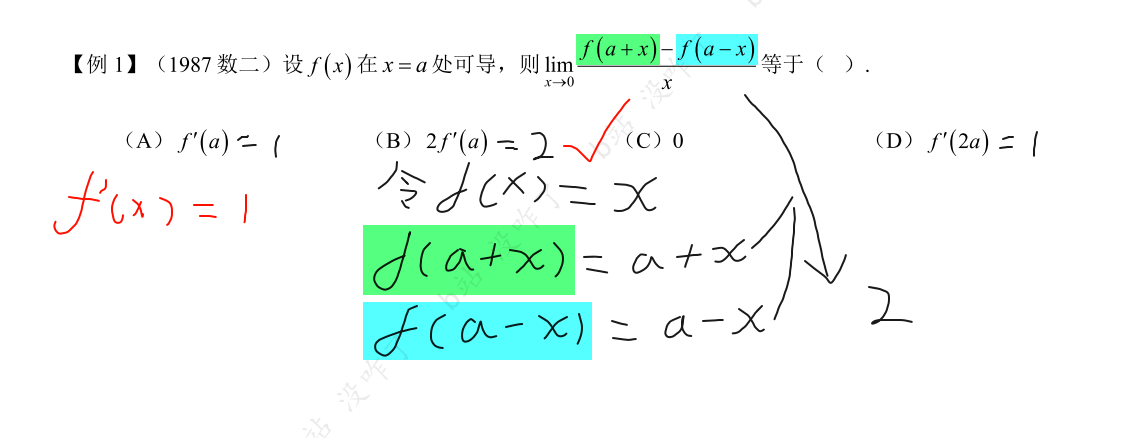 【例 1】（1987 数二）设 f(x) 在 x=a 处可导，则 lim_{x→0} \frac{f(a+x)-f(a-x)}{x} 等于（ ）.
（A）f′(a) = 1 （B）2f′(a) = 2 ✓ （C）0 （D）f′(2a) = 1
f′(x) = 1 令 f(x) = x
f(a+x) = a+x
f(a-x) = a-x 2
b站 没咋了